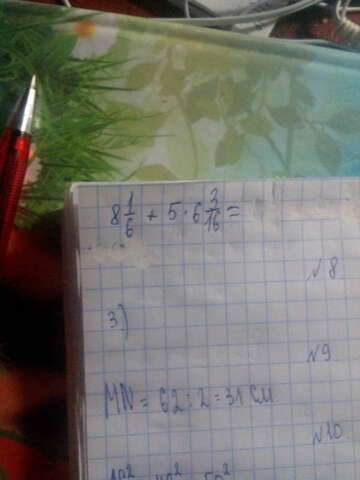 8 1/6 + 5 · 6 3/16 =
№8
3)
№9.
MN = 62 : 2 = 31 см
№10.